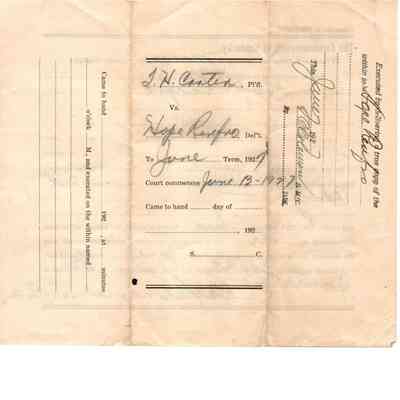 Came to hand
192 , at minutes
o'clock M., and executed on the within named
Pl'ff.
Vs.
Hope Renfro Def't.
To June Term, 1927
Court commences June 13 - 1927
Came to hand day of
192
S. C.
Executed by delivering a true copy of the
within to Hope Renfro
This June 192
By